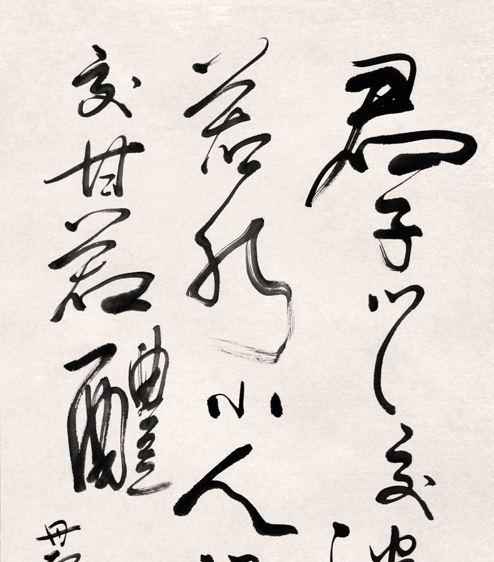 君子之交
若水小人
交甘若醴